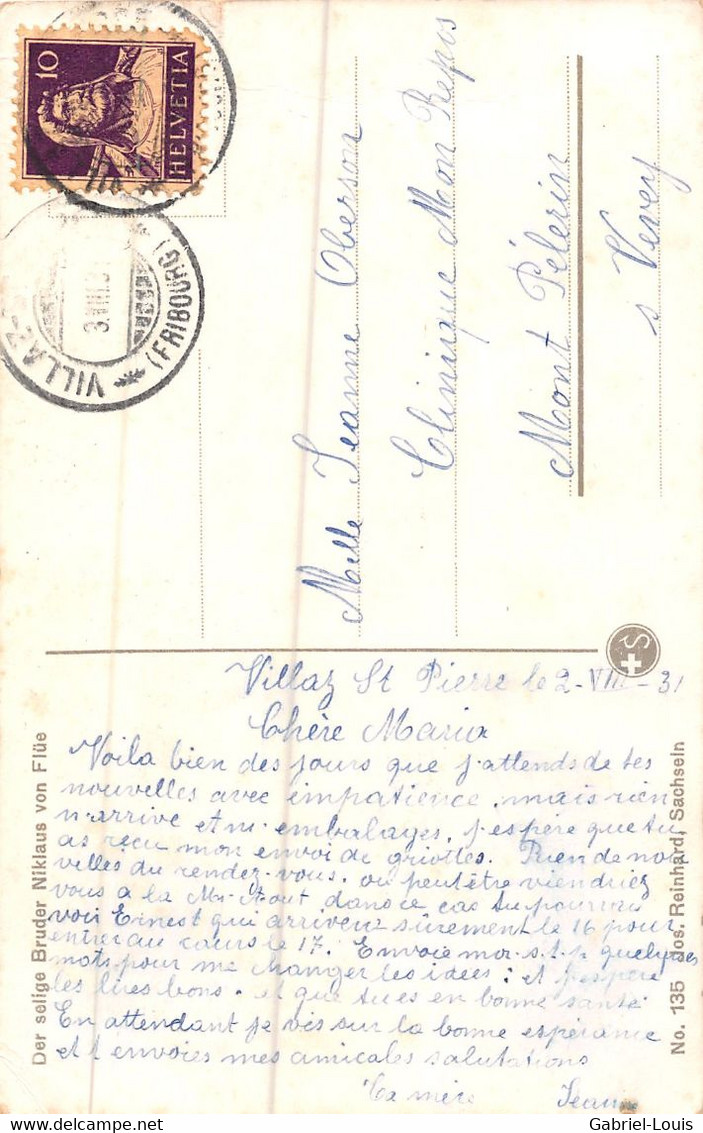 10
HELVETIA
VILLAZ-
(FRIBOURG)
3.VIII.31
Melle Jeanne Oberson
Clinique Mon Repos
Mont Pélerin
s Vevey
S
Villaz St Pierre le 2-VIII-31
Chère Maria
Voila bien des jours que j'attends de tes
nouvelles avec impatience, mais rien
n'arrive et ni embalages, j'espère que tu
as reçu mon envoi de griottes. Rien de nou
velles du rendez-vous, ou peut être viendriez
vous à la Mi-Aout, dans ce cas tu pourrais
voir Ernest qui arrivera sûrement le 16 pour
entrer au cours le 17. Envoie moi s.t.p. quelques
mots pour me changer les idées: et j'espère
les lires bons. et que tu es en bonne santé
En attendant je vis sur la bonne espérance
et t'envoies mes amicales salutations
Ta mère Jeanne
Der selige Bruder Niklaus von Flüe
No. 135 Jos. Reinhard, Sachseln
Gabriel-Louis